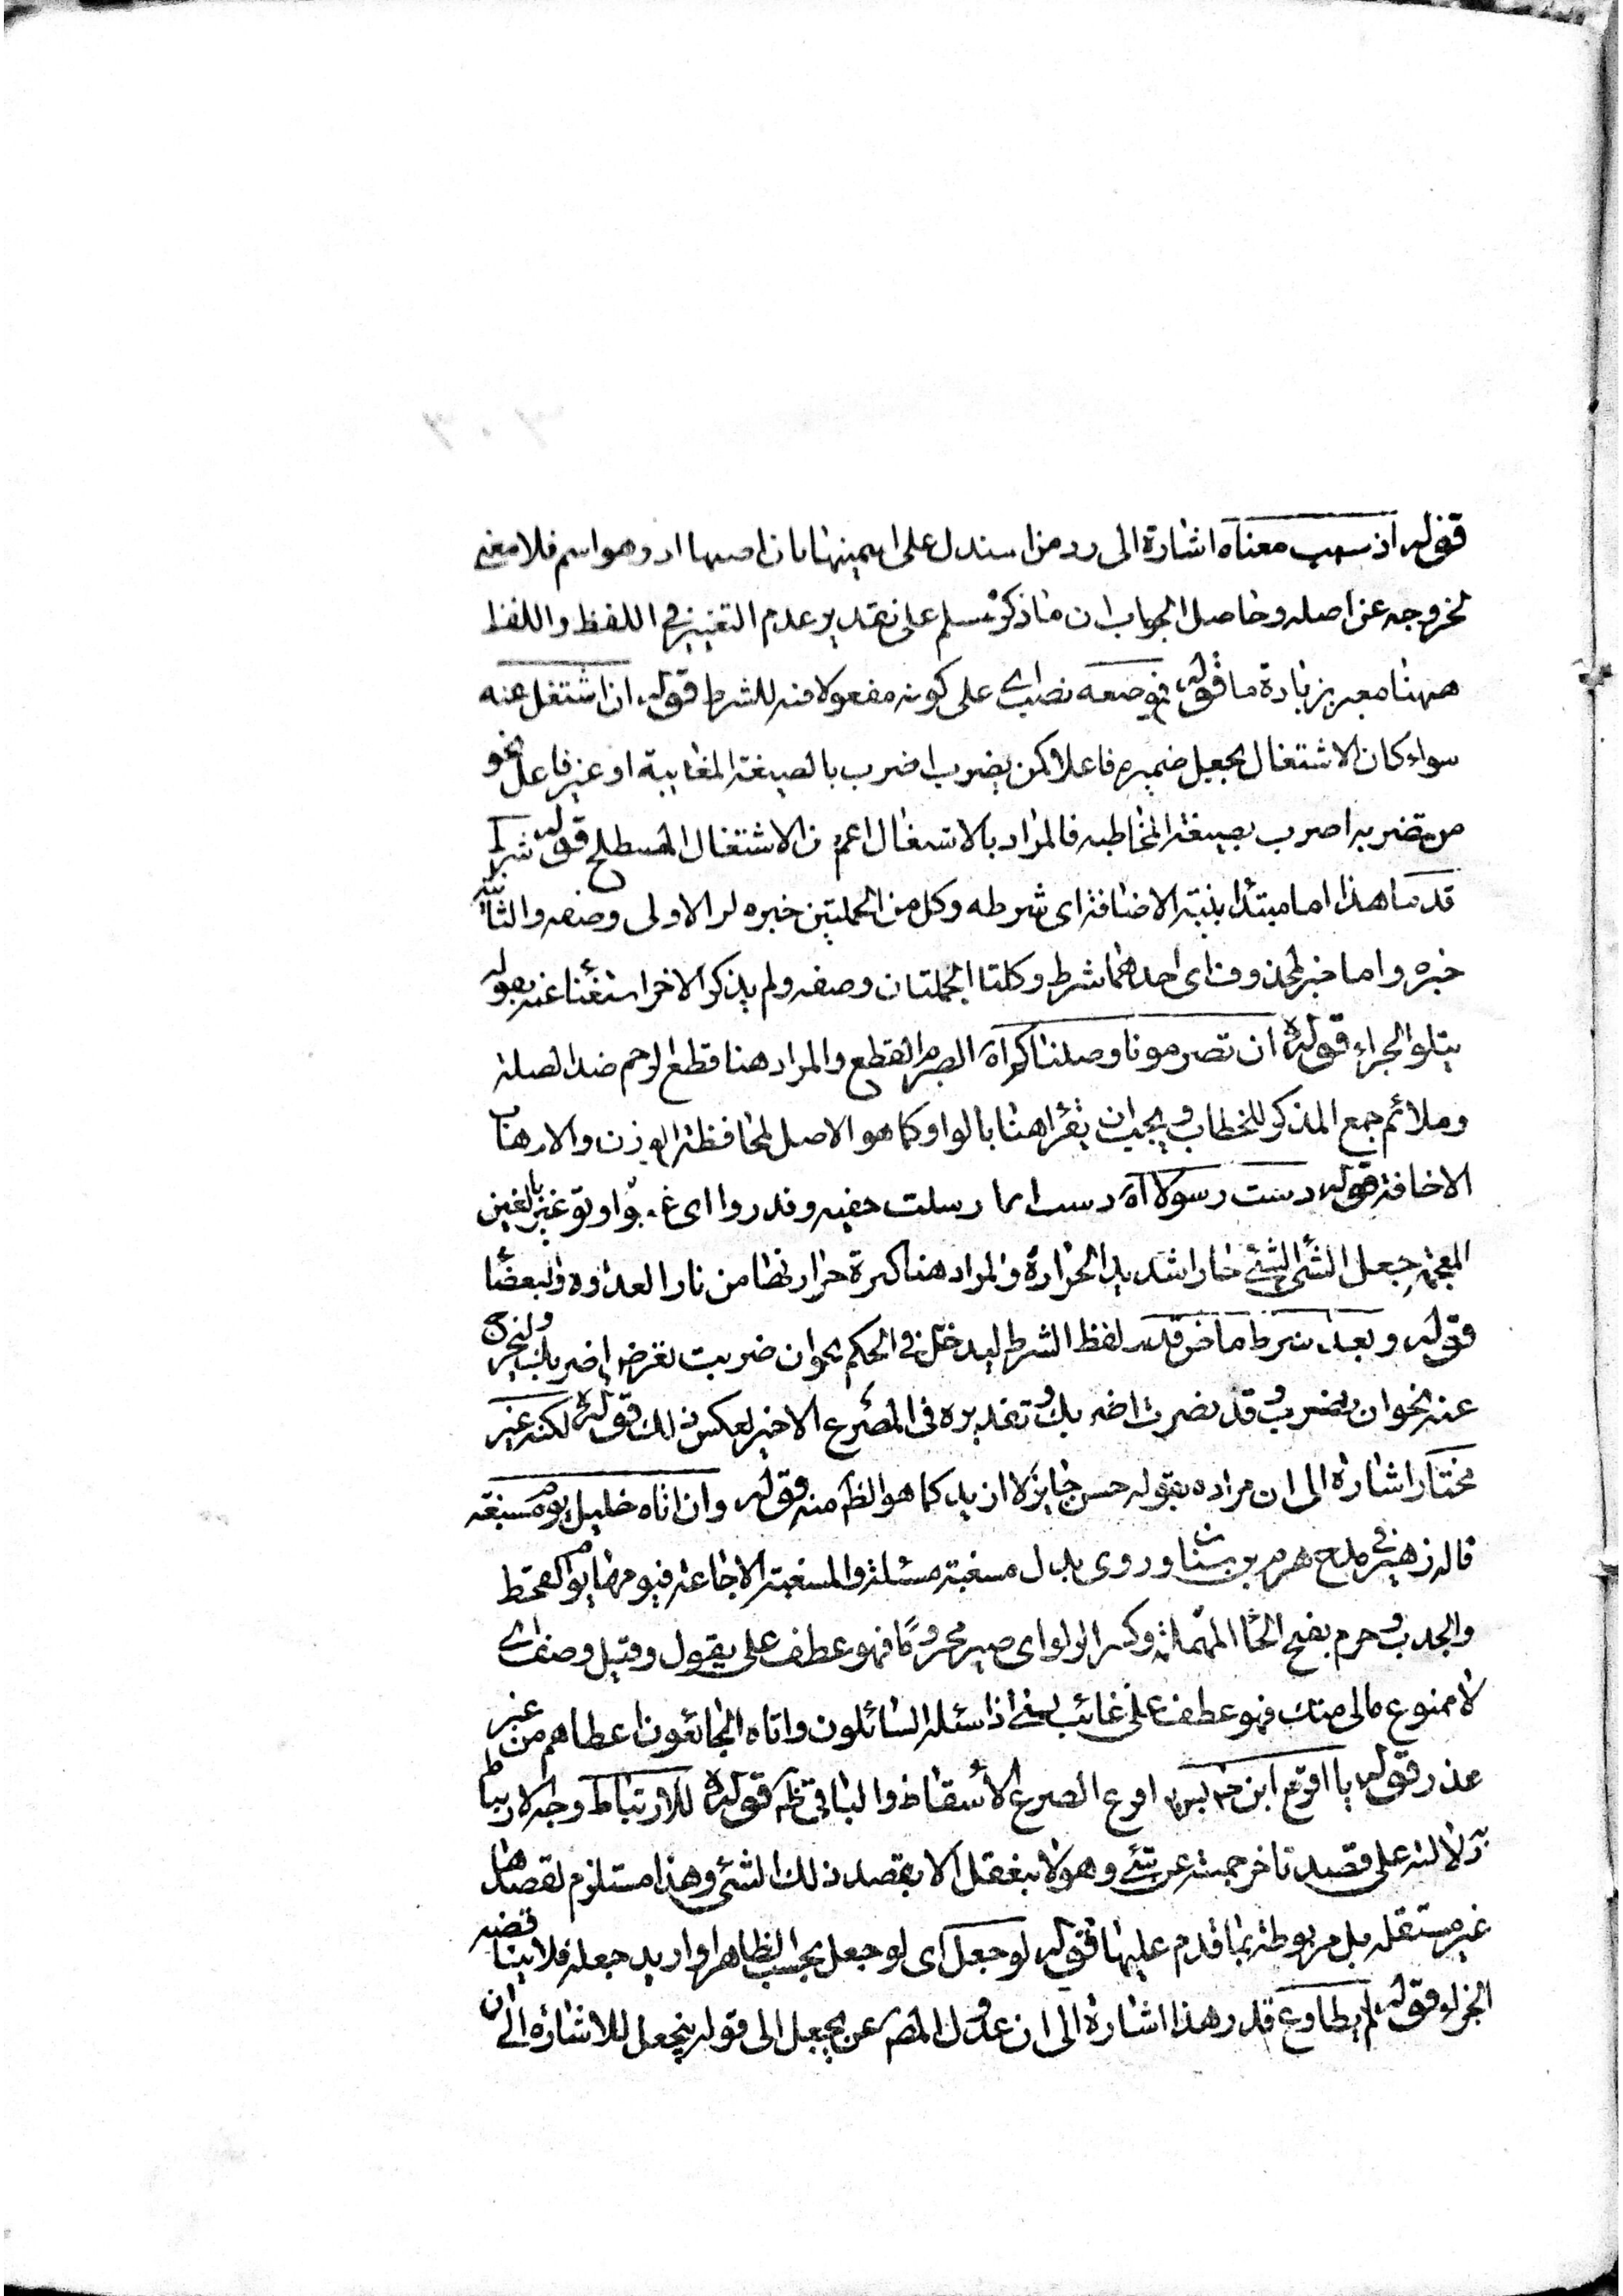 قوله اذ سلب معناه اشارة الى رد من استدل على اسميتها بان اصلها اذ وهو اسم فلا معنى
لخروجه عن اصله وحاصل الجواب ان ماذكر مسلم على تقدير عدم التغيير فى اللفظ واللفظ
ههنا مغير بزيادة ما قوله موضعه نصب اى على كونه مفعولا فيه للشرط قوله ان اشتغل عنه
سواء كان الاشتغال بجعل ضميره فاعلا كمن يضرب اضرب بالصيغة المغايبة او غير فاعل نحو
من تضربه اضرب بصيغة المخاطبه فالمراد بالاشتغال اعم من الاشتغال المصطلح قوله شرط
قدما هذا اما مبتدا بنية الاضافة اى شرطه وكل من الجملتين خبره او الاولى وصفه والثانية
خبره واما خبر لمحذوف اى احدهما شرط وكلتا الجملتان وصفه ولم يذكر الاخر استغناء عنه بقوله
يتلو الجزاء قوله ان تصرمونا وصلناكم اه الصرم القطع والمراد هنا قطع الرحم ضد الصلة
وملائم جمع المذكر للخطاب ويجب ان يقرا هنا بالواو كما هو الاصل لمحافظة الوزن والارهاب
الاخافة قوله دست رسولا اه دست ارسلت خفيه وقدروا اى توغير بالغين
المعجمة جعل الشئ الشئ حارا شديد الحرارة والمراد هنا كثرة حرارتها من نار العداوة والبعضا
قوله وبعد شرط ماض قدر لفظ الشرط ليدخل فى الحكم نحو ان ضربت تعرض اضربك وليخرج
عنه نحو ان يضرب وقد نصرت اضربك وتقديره فى المصرع الاخير لعكس ذلك قوله لكنه غير
مختار اشارة الى ان مراده بقوله حسن جايز لا ازيد كما هو الظ منه قوله وان اتاه خليل يوم مسغبة
قاله زهير فى مدح هرم بن سنان وروى بدل مسغبة مسئلة والمسغبة الاجاعة فيومها يوم القحط
والجدب وحرم بفتح الحاء المهملة وكسر الراء اى صير محروما فهو عطف على يقول وقيل وصف اى
لا ممنوع مالى منك فهو عطف على غائب يعنى اذا سئله السائلون واتاه الجائعون اعطاهم من غير
عذر قوله يا اقرع ابن حابس اه اقرع الصرع الاسقاط والباقى ظ قوله للارتباط وجه الارتباط
دلالته على قصد تاخر جمله عن شئ وهو لا يتعقل الا بقصد ذلك الشئ وهذا مستلزم لقصدها
غير مستقلة بل مربوطة بما قدم عليها قوله لو جعل اى لو جعل بحسب الظاهر او اريد جعله فلا يناقضه
الجزاء قوله لم يطاوع قدر هذا اشارة الى ان عدول المص عن يجعل الى قوله ينجعل للاشارة الى ان